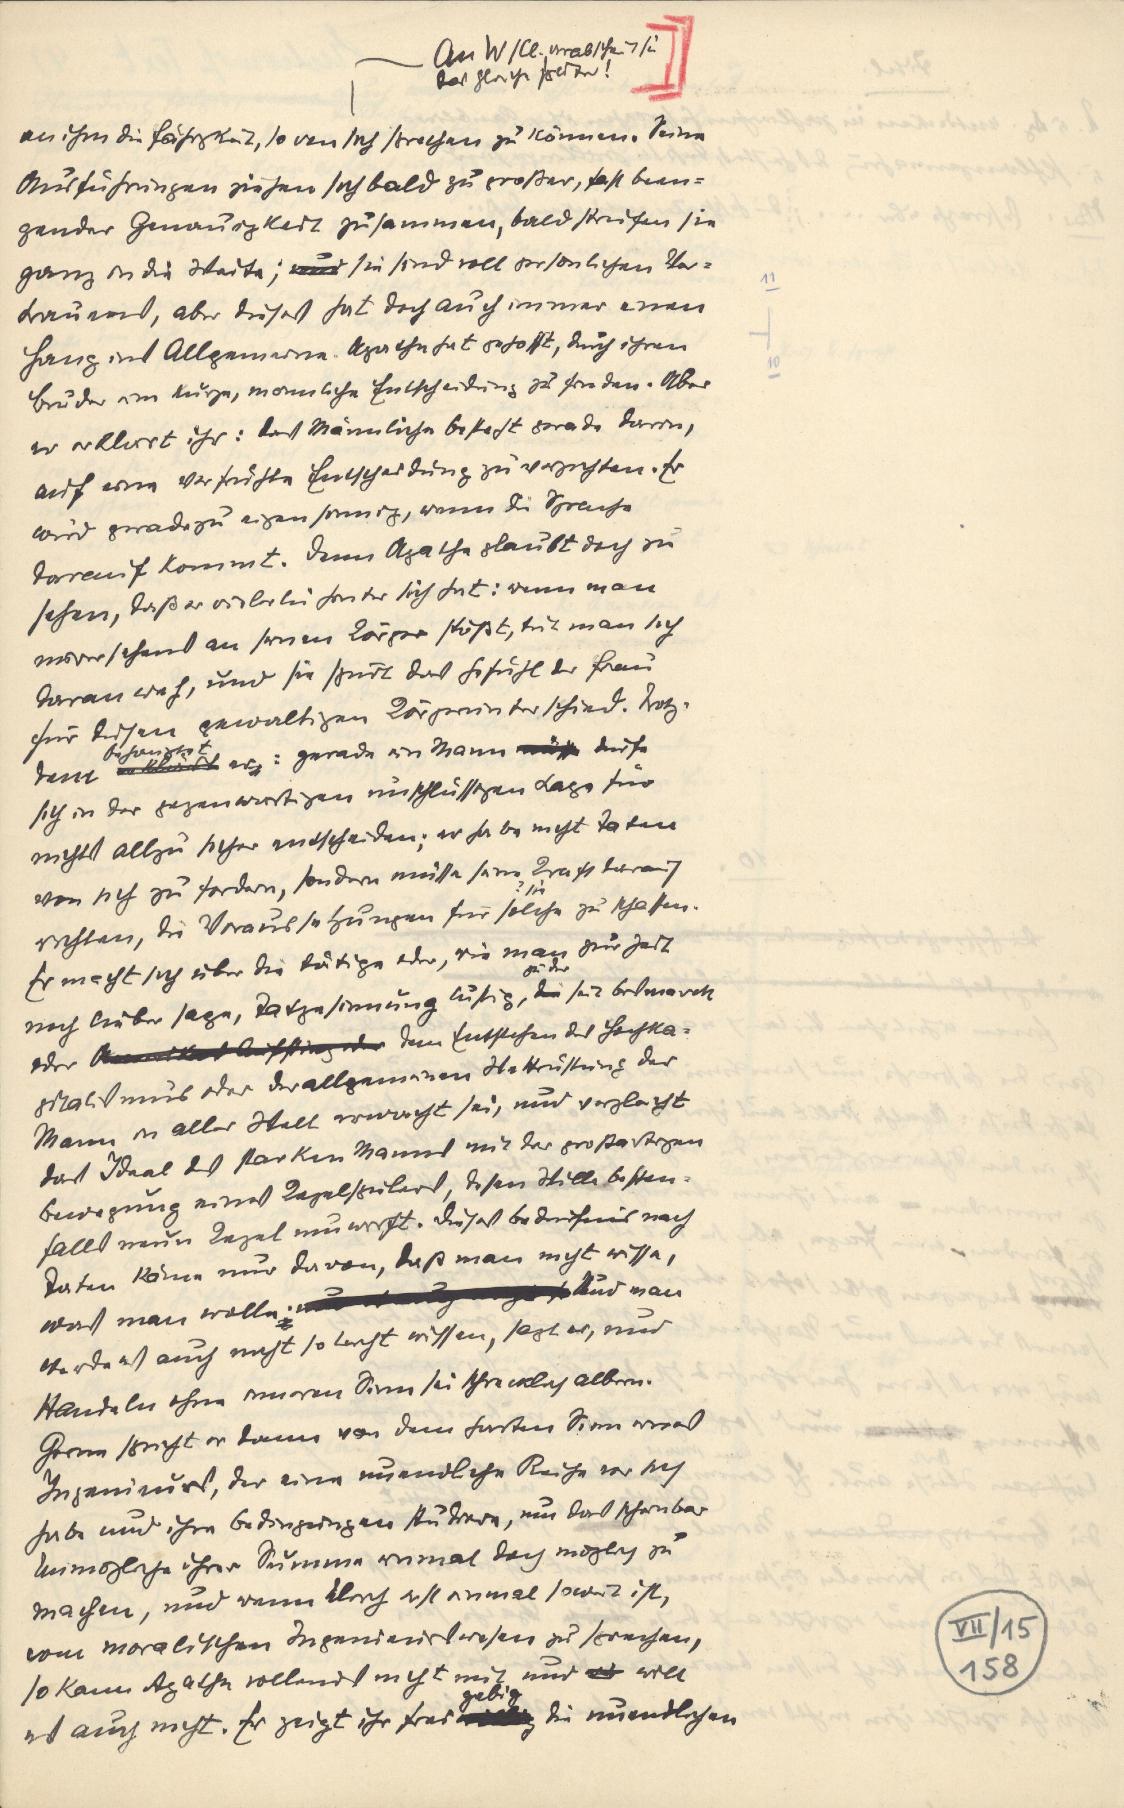 An W/Cl. verabscheut sie
das gleiche später!
an ihm die Fähigkeit, so von sich sprechen zu können. Seine
Ausführungen ziehen sich bald zu großer, fast been=
gender Genauigkeit zusammen, bald streifen sie
ganz in die Weite; sie sind voll persönlichen Ver=
trauens, aber dieses hat doch auch immer einen
Hang ins Allgemeine. Agathe hat gehofft, durch ihren
Bruder eine kurze, männliche Entscheidung zu finden. Aber
er erklärt ihr: das Männliche besteht gerade darin,
auf eine verfrühte Entscheidung zu verzichten. Er
wird geradezu eigensinnig, wenn die Sprache
darauf kommt. Denn Agathe glaubt doch zu
sehen, daß er vielerlei hinter sich hat: wenn man
unversehens an seinen Körper stößt, tut man sich
daran weh, und sie spürt das Gefühl der Frau
für diesen gewaltigen Körperunterschied. Trotz-
dem behauptet er: gerade ein Mann dürfe
sich in der gegenwärtigen unschlüssigen Lage für
nichts allzu sicher entscheiden; er habe nicht Taten
von sich zu fordern, sondern müsse seine Kraft darauf
richten, die Voraussetzungen für solche zu schaffen.
? sie
Er macht sich über die tätige oder, wie man zur Zeit
noch lieber sage, Tatgesinnung lustig, zu der seit Bismarck
oder dem Entstehen des Hochka=
pitalismus oder der allgemeinen Wettrüstung der
Mann in aller Welt erwacht sei, und vergleicht
das Ideal des starken Manns mit der großartigen
Bewegung eines Kegelspielers, dessen Wille besten=
falls neun Kegel umwirft. Dieses Bedürfnis nach
Taten käme nur davon, daß man nicht wisse,
was man wolle. Und man
werde es auch nicht so leicht wissen, sagt er, und
Handeln ohne inneren Sinn sei schrecklich albern.
Gerne spricht er dann von dem harten Sinn eines
Ingenieurs, der eine unendliche Reihe vor sich
habe und ihre Bedingungen studiere, um das scheinbar
Unmögliche ihrer Summe einmal doch möglich zu
machen, und wenn Ulrich erst einmal soweit ist,
vom moralischen Ingenieurswesen zu sprechen,
so kann Agathe vollends nicht mit und will
es auch nicht. Er zeigt ihr freigebig die unendlichen
11
10
VII/15
158